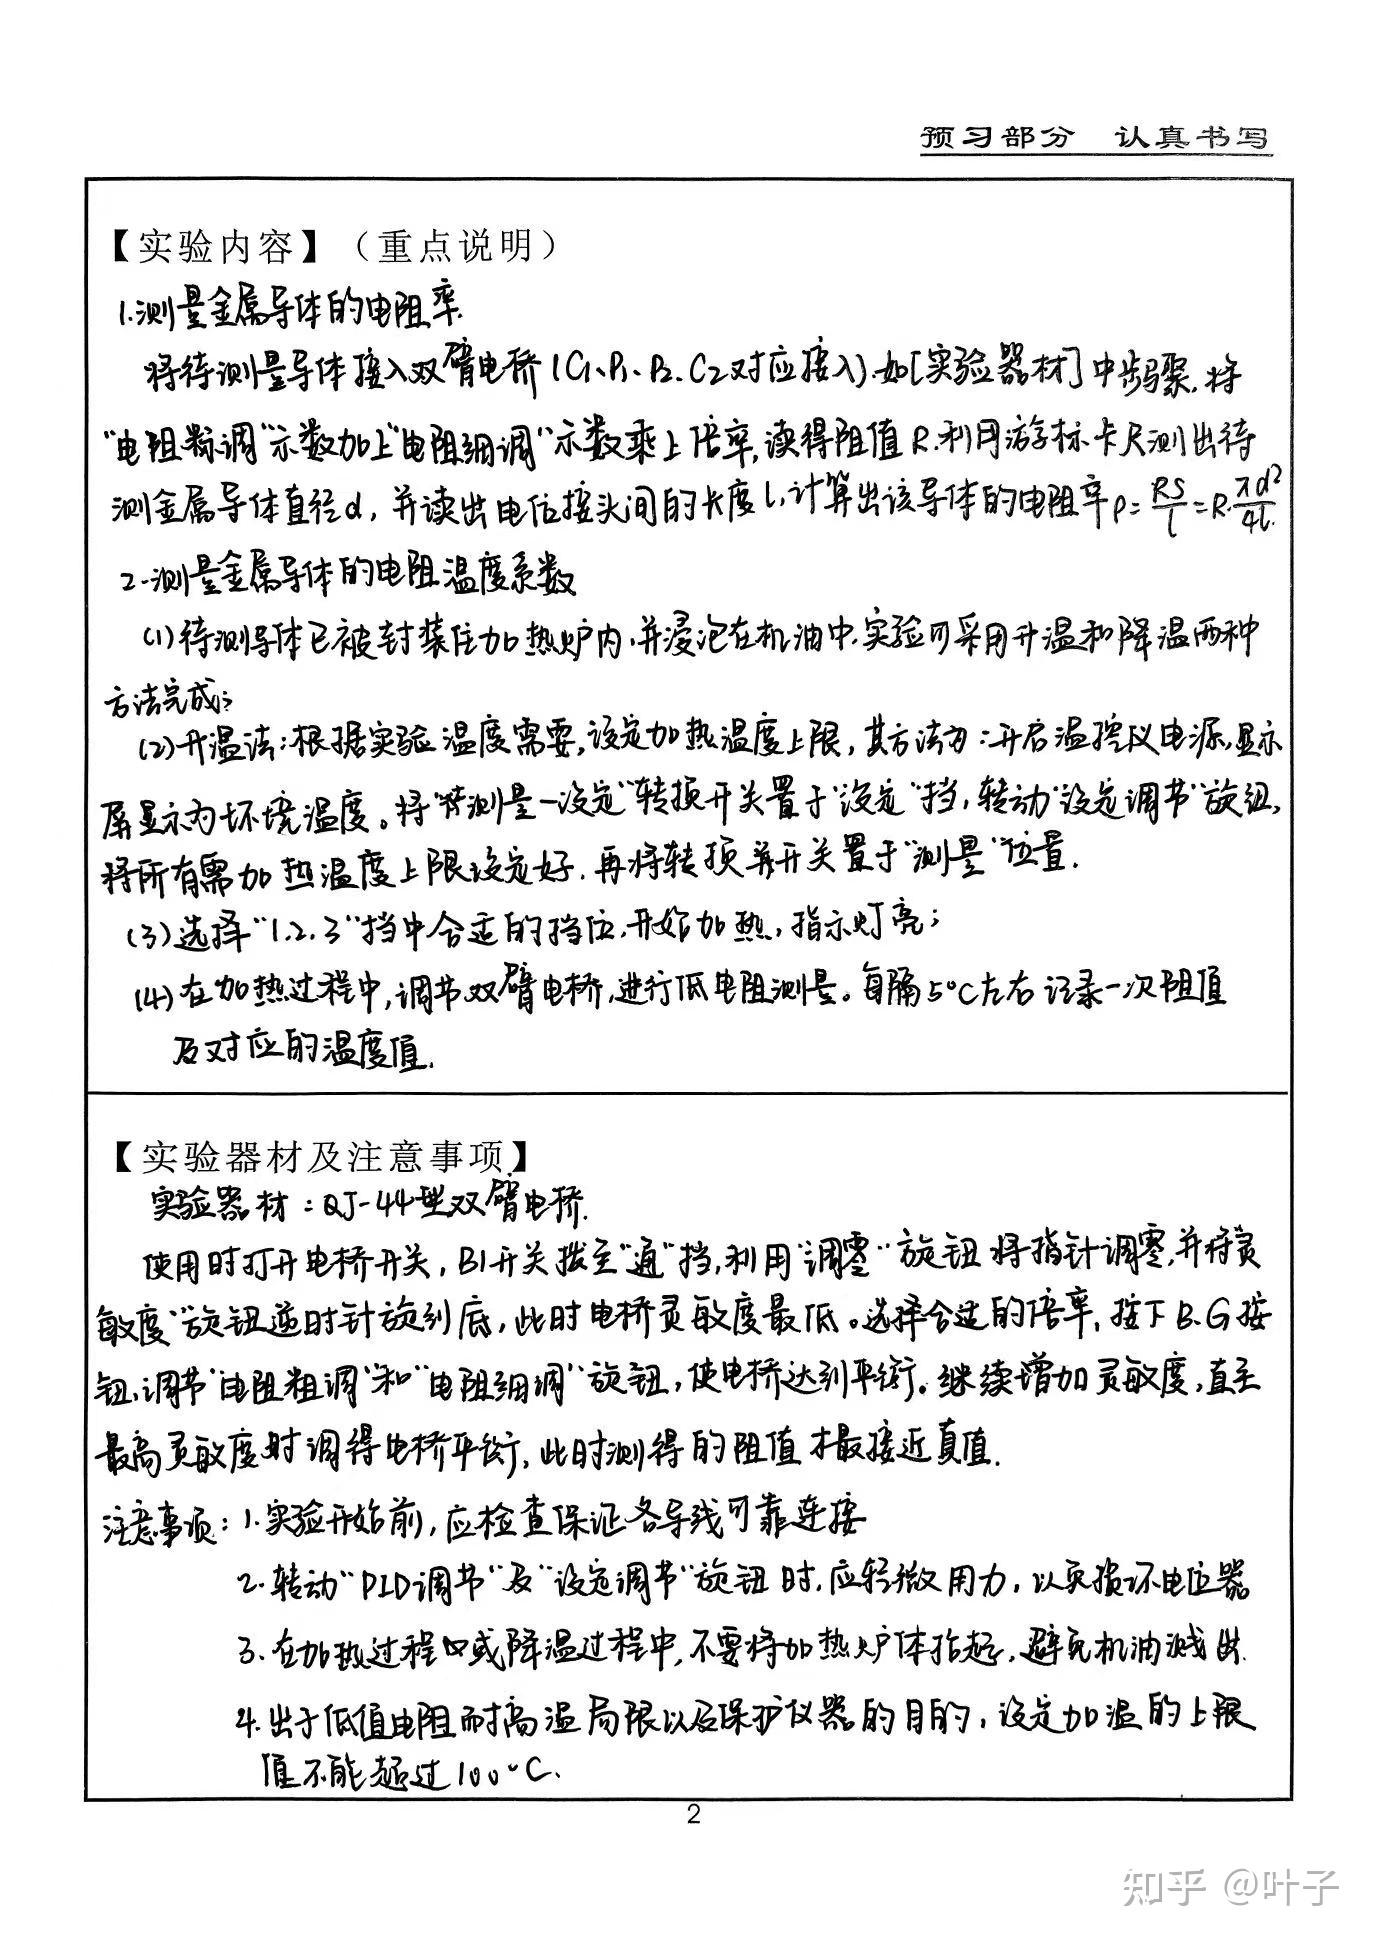 预习部分 认真书写
【实验内容】（重点说明）
1.测量金属导体的电阻率.
将待测量导体接入双臂电桥(C1、P1、P2、C2对应接入).如[实验器材]中步骤.将
"电阻粗调"示数加上"电阻细调"示数乘上倍率,读得阻值R.利用游标卡尺测出待
测金属导体直径d,并读出电位接头间的长度l,计算出该导体的电阻率ρ=RS/l=R·πd²/4l.
2.测量金属导体的电阻温度系数
(1)待测导体已被封装在加热炉内,并浸泡在机油中,实验可采用升温和降温两种
方法完成;
(2)升温法:根据实验温度需要,设定加热温度上限,其方法为:开启温控仪电源,显示
屏显示为环境温度。将"测量-设定"转换开关置于"设定"挡,转动"设定调节"旋钮,
将所有需加热温度上限设定好.再将转换开关置于"测量"位置.
(3)选择"1.2.3"挡中合适的挡位,开始加热,指示灯亮;
(4)在加热过程中,调节双臂电桥,进行低电阻测量。每隔5°C左右记录一次阻值
及对应的温度值.
【实验器材及注意事项】
实验器材:QJ-44型双臂电桥.
使用时打开电桥开关,B1开关拨至"通"挡,利用"调零"旋钮将指针调零,并将灵
敏度"旋钮逆时针旋到底,此时电桥灵敏度最低。选择合适的倍率,按下B.G按
钮,调节"电阻粗调"和"电阻细调"旋钮,使电桥达到平衡。继续增加灵敏度,直至
最高灵敏度时调得电桥平衡,此时测得的阻值才最接近真值.
注意事项:1.实验开始前,应检查保证各导线可靠连接
2.转动"PID调节"及"设定调节"旋钮时,应轻微用力,以免损坏电位器
3.在加热过程或降温过程中,不要将加热炉体抬起,避免机油溅出.
4.出于低值电阻耐高温局限以及保护仪器的目的,设定加温的上限
值不能超过100°C.
2
知乎 @叶子